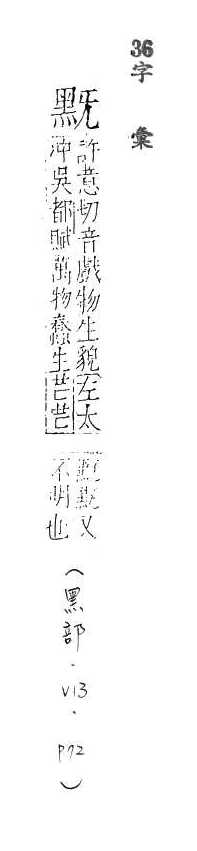 36字 彙
黖
許意切音戲物生貌左太
沖吳都賦萬物蠢生芒芒
黖黖又
不明也
(黑部.V13.P72)